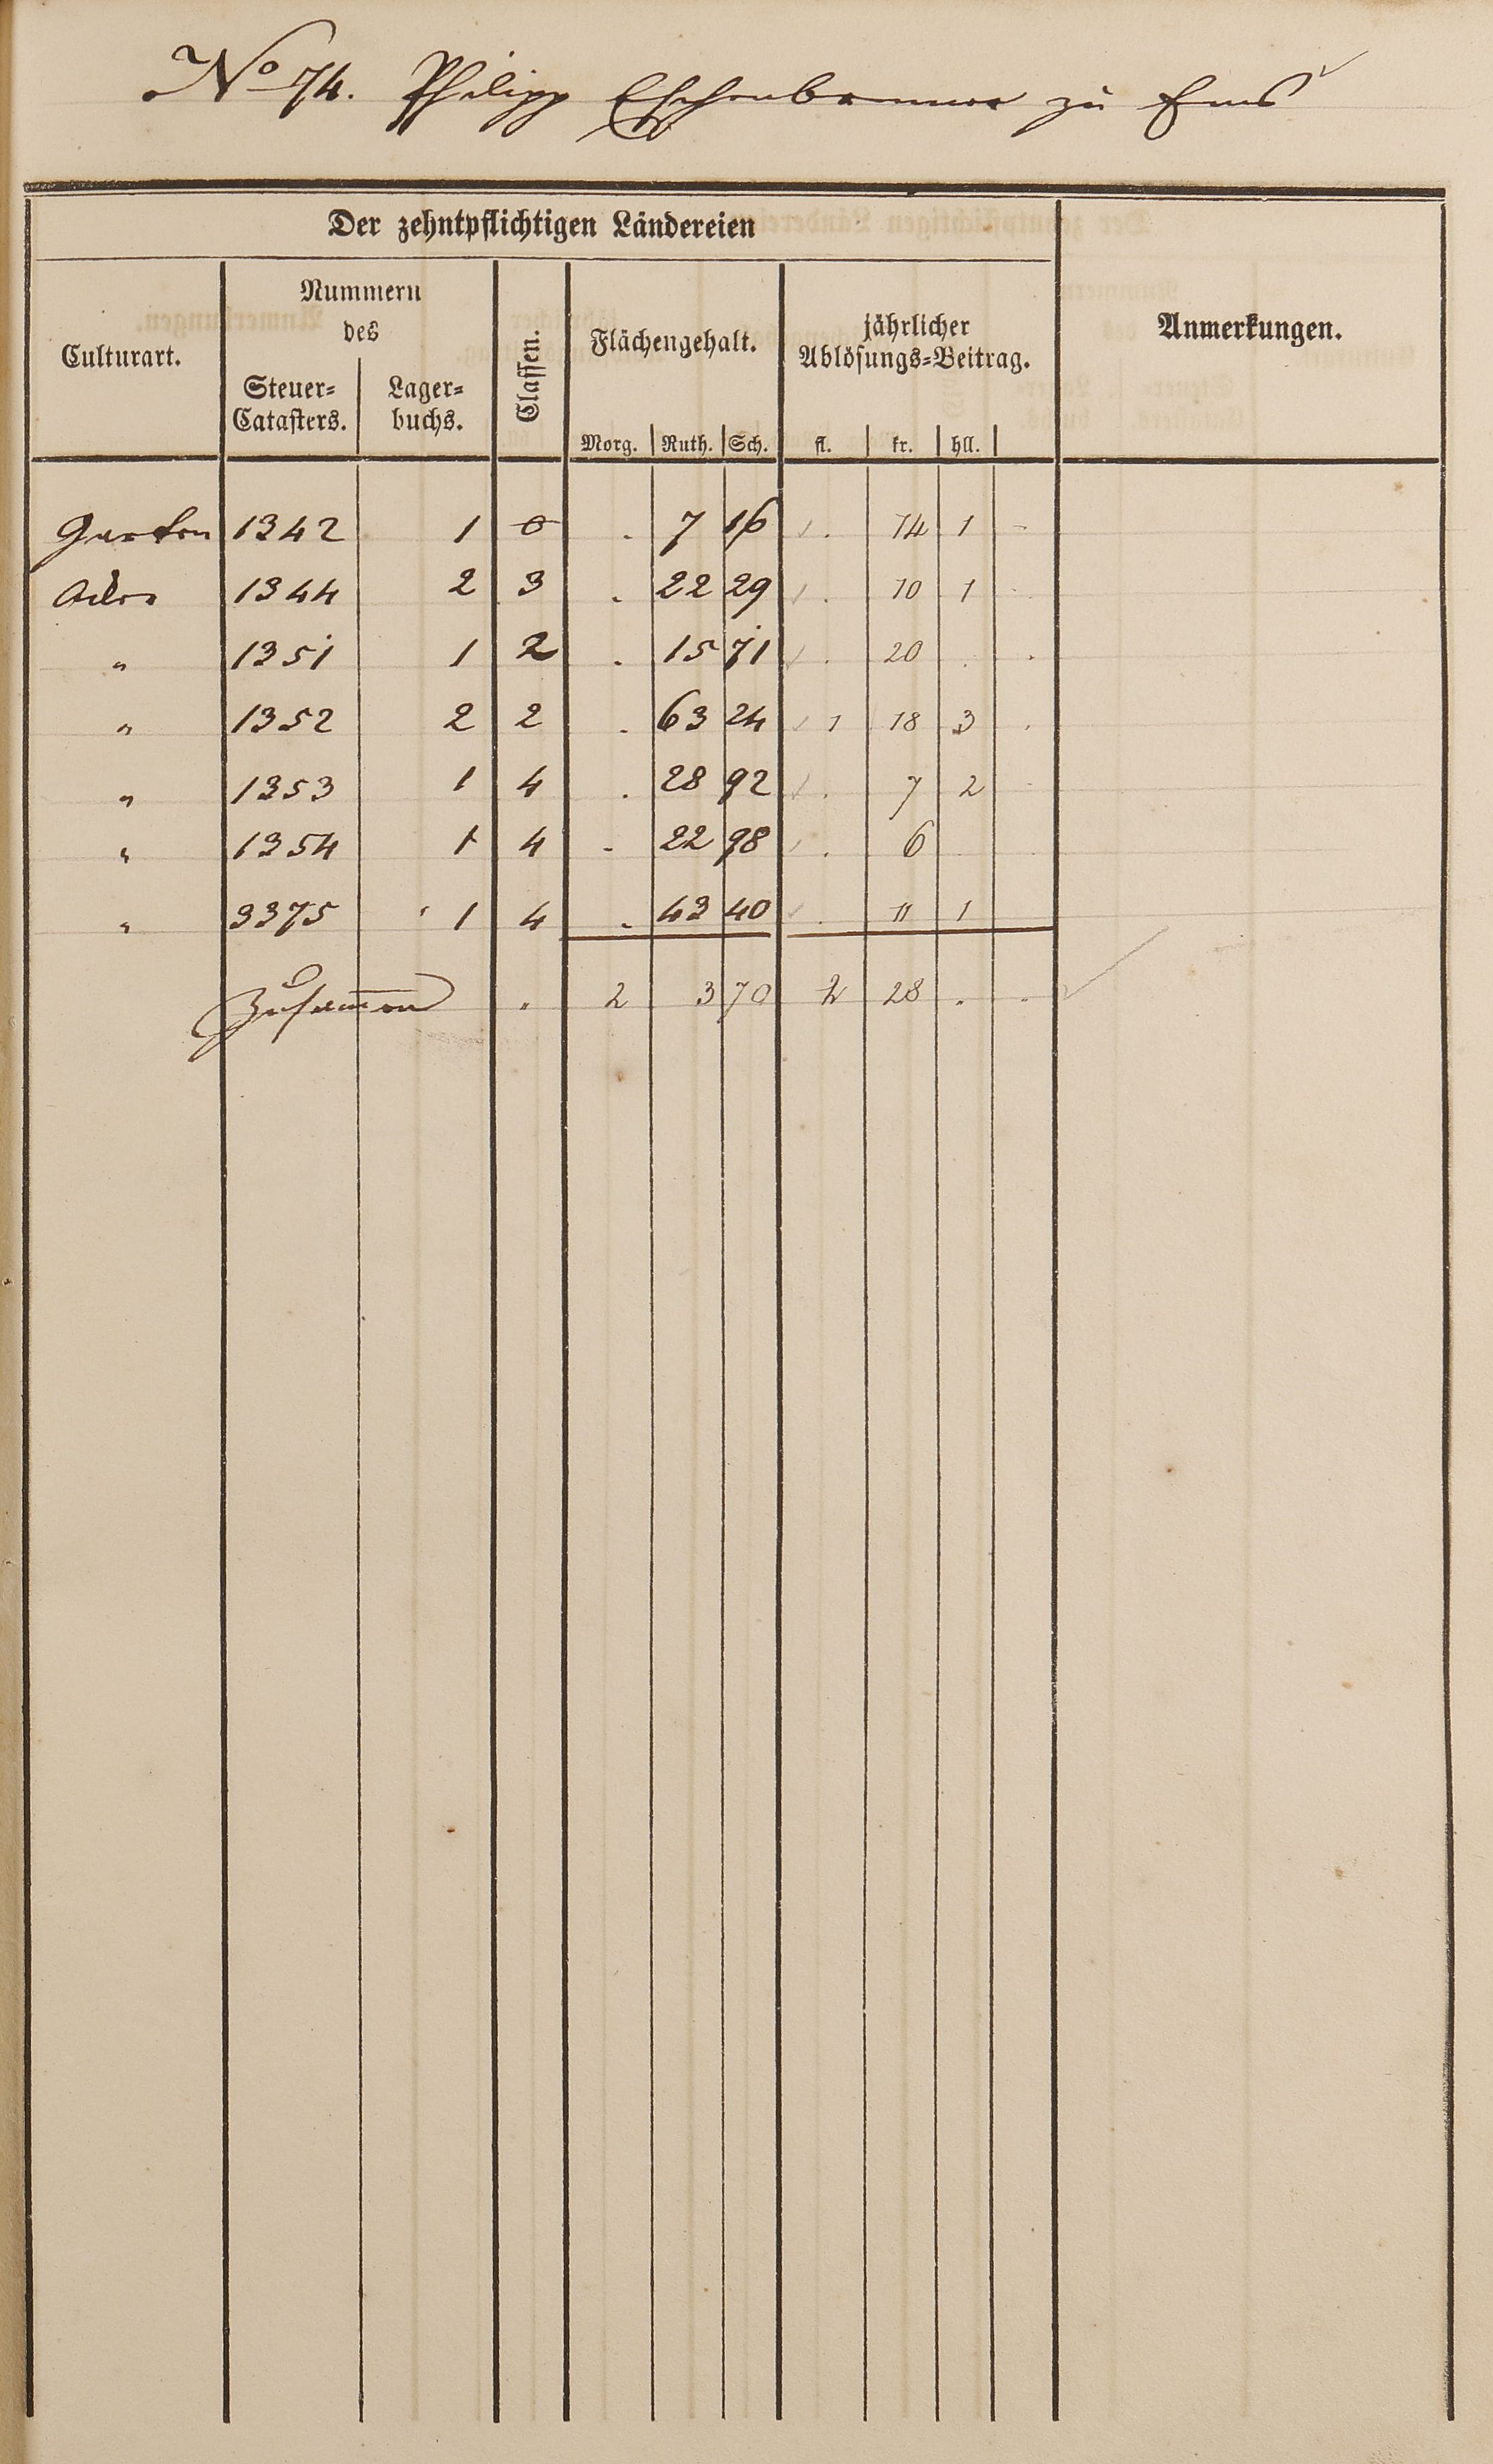 No 74. Philipp Eschenbrenner zu Ems
Der zehntpflichtigen Ländereien
Culturart.
Nummern
des
Steuer=
Catasters.
Lager=
buchs.
Classen.
Flächengehalt.
Morg. Ruth. Sch.
jährlicher
Ablösungs=Beitrag.
fl. kr. hll.
Anmerkungen.
Garten 1342 1 0 . 7 16 . 14 1 -
Acker 1344 2 3 . 22 29 . 10 1 .
" 1351 1 2 . 15 71 . 20 . .
" 1352 2 2 . 63 24 1 18 3 .
" 1353 1 4 . 28 92 . 7 2 .
" 1354 1 4 . 22 98 . 6
" 3375 1 4 . 43 40 . 11 1
Zusam̅en . 2 3 70 2 28 . .